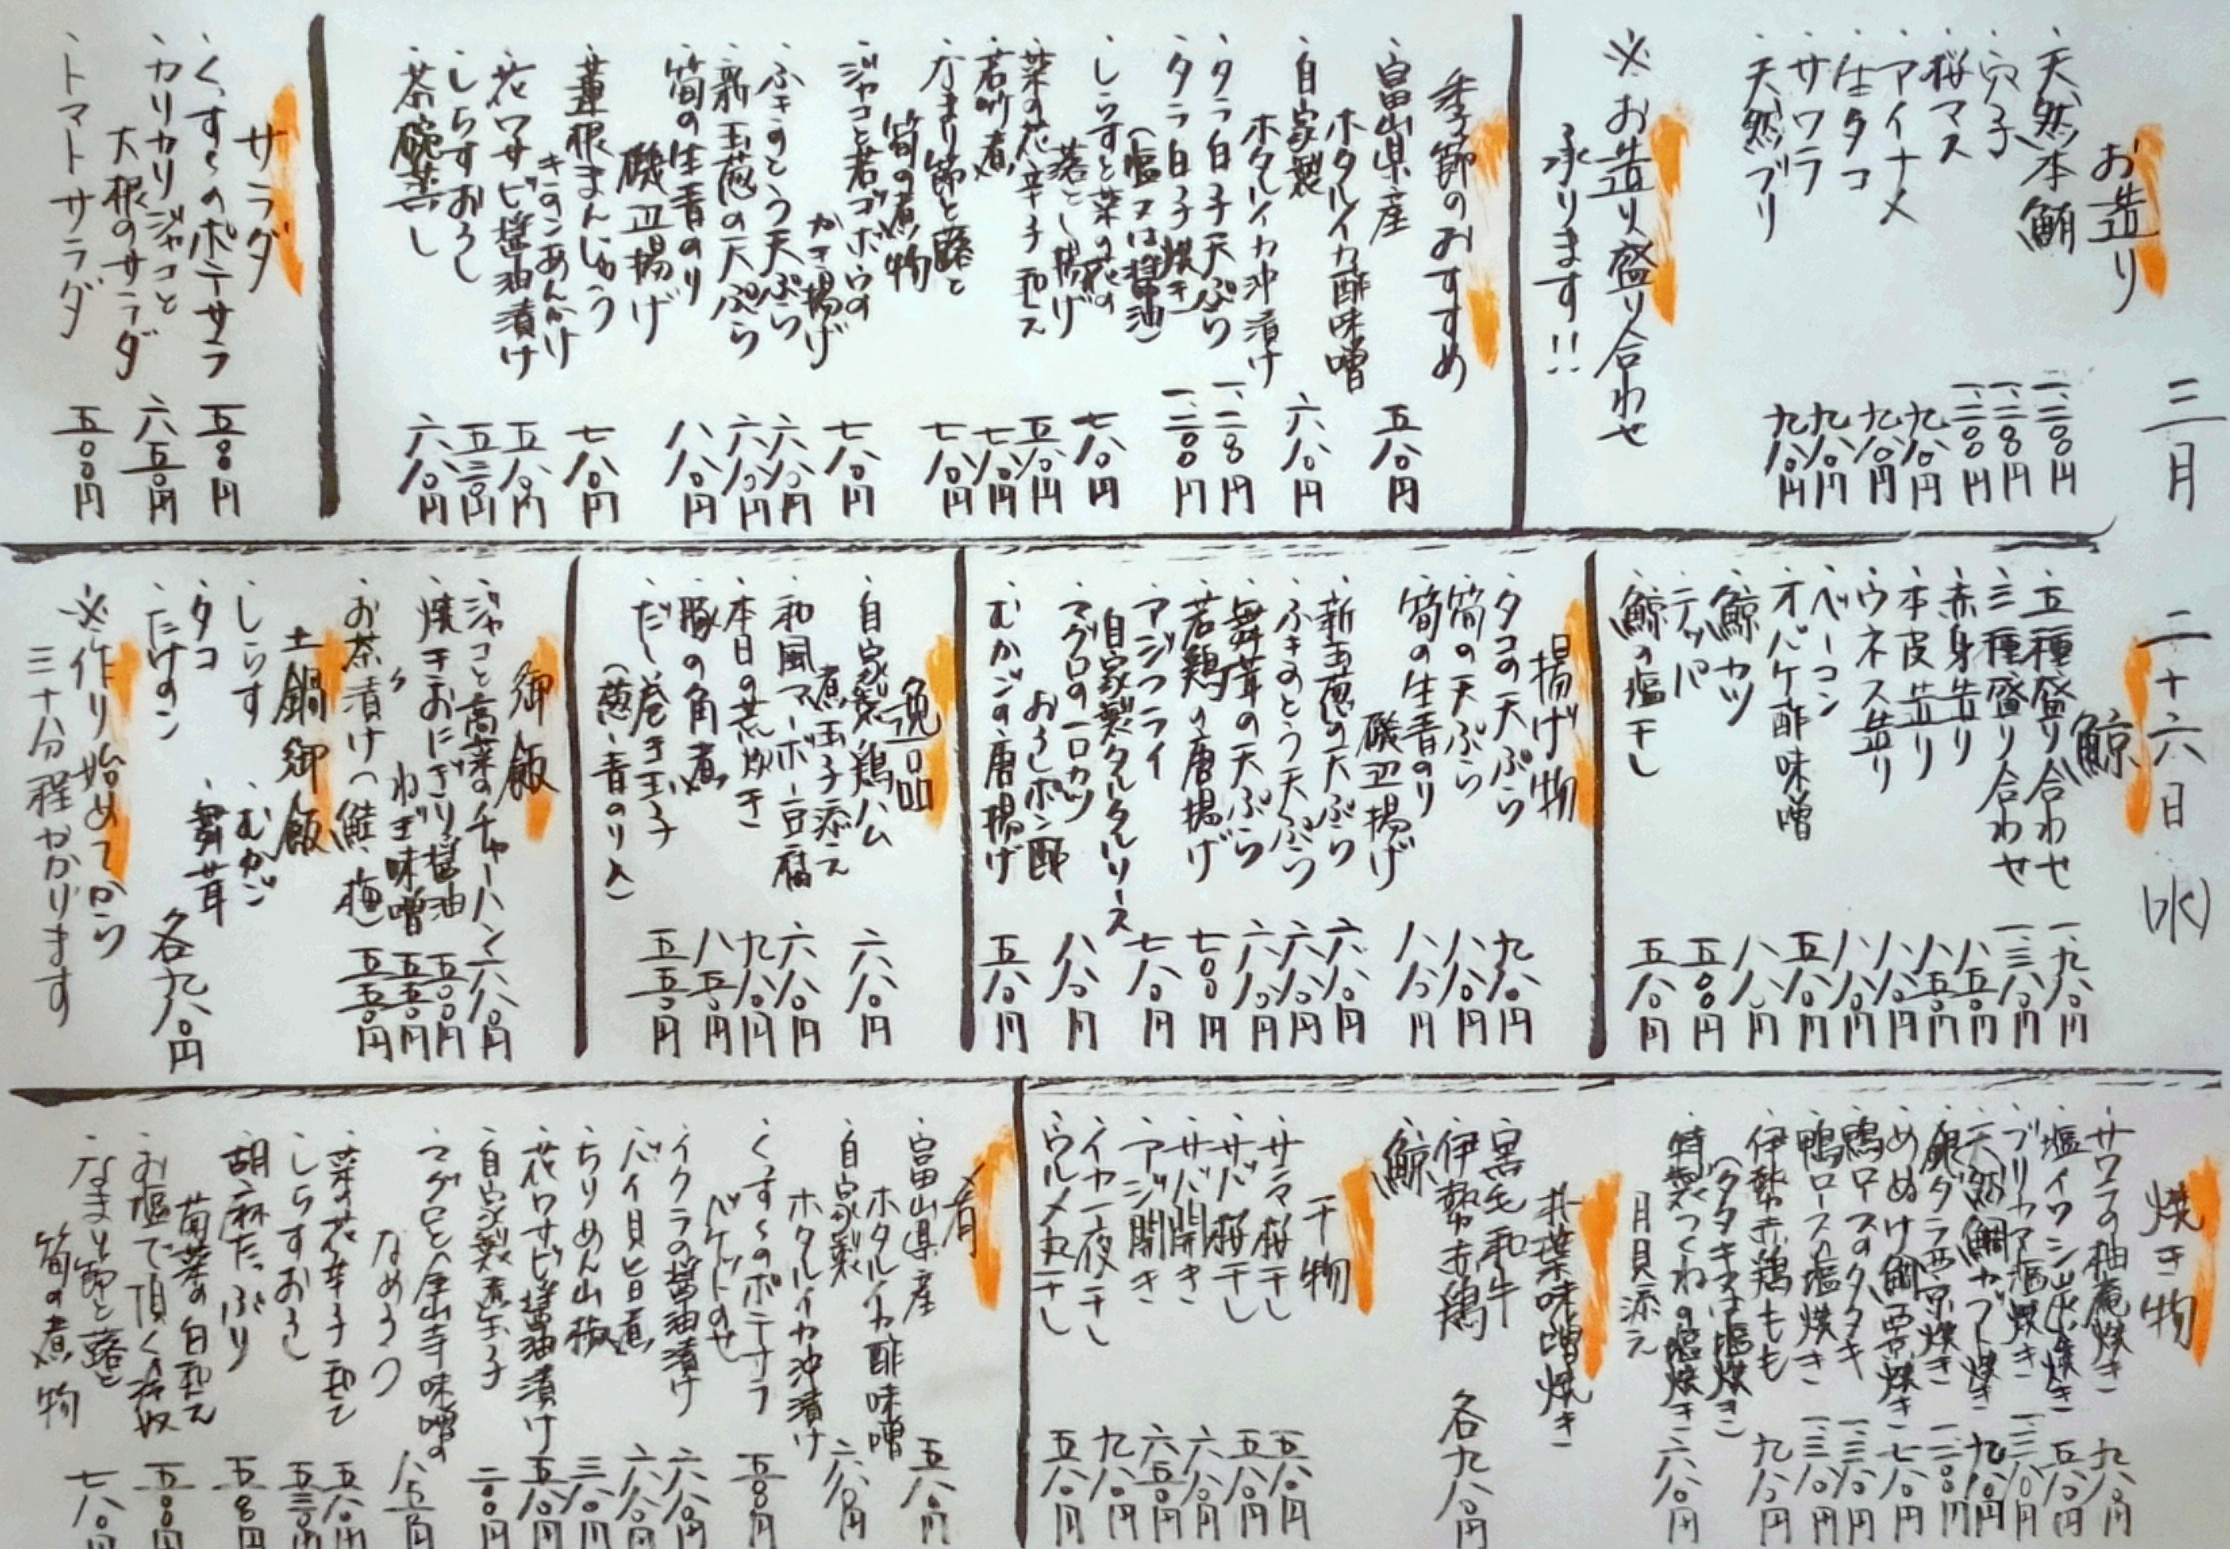 三月 二十六日 (水)
お造り
・天然本鮪 一、二〇〇円
・穴子 一、二〇〇円
・桜マス 一、二〇〇円
・アイナメ 九八〇円
・生タコ 九八〇円
・サワラ 九八〇円
・天然ブリ 九八〇円
※お造り盛り合わせ
承ります!!
季節のおすすめ
・富山県産
ホタルイカ酢味噌 五八〇円
・自家製
ホタルイカ沖漬け 六八〇円
・タラ白子天ぷら 一、二〇〇円
・タラ白子焼き
(塩又は醤油) 一、二〇〇円
・しらすと菜の花の
落とし揚げ 七八〇円
・菜の花辛子和え 五八〇円
・若竹煮 七八〇円
・なまり節と蕗と
筍の煮物 七八〇円
・ジャコと若ゴボウの
かき揚げ 七八〇円
・ふきのとう天ぷら 六八〇円
・新玉葱の天ぷら 六八〇円
・筍の生青のり
磯辺揚げ 八八〇円
・蓮根まんじゅう
きのこあんかけ 七八〇円
・花ワサビ醤油漬け 五八〇円
・しらすおろし 五三〇円
・茶碗蒸し 六八〇円
サラダ
・くずくのポテサラ 五〇〇円
・カリカリジャコと
大根のサラダ 六五〇円
・トマトサラダ 五〇〇円
鯨
・五種盛り合わせ 一、九八〇円
・三種盛り合わせ 一、三八〇円
・赤身造り 八五〇円
・本皮造り 八五〇円
・ウネス造り 八八〇円
・ベーコン 八八〇円
・オバケ酢味噌 五八〇円
・鯨カツ 八八〇円
・テッパ 五〇〇円
・鯨の塩干し 五八〇円
揚げ物
・タコの天ぷら 九八〇円
・筍の天ぷら 八八〇円
・筍の生青のり
磯辺揚げ 八八〇円
・新玉葱の天ぷら 六八〇円
・ふきのとう天ぷら 六八〇円
・舞茸の天ぷら 六八〇円
・若鶏の唐揚げ 七〇〇円
・アジフライ
自家製タルタルソース 七八〇円
・マグロの一口カツ
おろしポン酢 八八〇円
・むかごの唐揚げ 五八〇円
逸品
・自家製鶏ハム
煮玉子添え 六八〇円
・和風マーボー豆腐 六八〇円
・本日の荒炊き 九八〇円
・豚の角煮 八五〇円
・だし巻き玉子
(葱・青のり入) 五五〇円
御飯
・ジャコと高菜のチャーハン 六八〇円
・焼きおにぎり醤油 五〇〇円
・〃 ねぎ味噌 五五〇円
・お茶漬け(鮭・梅) 五五〇円
土鍋御飯
・しらす ・むかご
・タコ ・舞茸
・たけのこ 各九八〇円
※作り始めてから
三十分程かかります
焼き物
・サワラの柚庵焼き 九八〇円
・塩イワシ炭火焼き 五八〇円
・ブリカマ塩焼き 一、三八〇円
・天然鯛カブト焼き 九八〇円
・銀ダラ西京焼き 一、二〇〇円
・めぬけ鯛西京焼き 七八〇円
・鴨ロースのタタキ 一、三八〇円
・鴨ロース塩焼き 一、三八〇円
・伊勢赤鶏もも
(タタキ又は塩焼き) 九八〇円
・特製つくねの塩焼き
月見添え 六八〇円
朴葉味噌焼き
・黒毛和牛
・伊勢赤鶏 各九八〇円
・鯨
干物
・サンマ桜干し 五八〇円
・サバ桜干し 五八〇円
・サバ開き 六八〇円
・アジ開き 六五〇円
・イカ一夜干し 九八〇円
・ウルメ丸干し 五八〇円
肴
・富山県産
ホタルイカ酢味噌 五八〇円
・自家製
ホタルイカ沖漬け 六八〇円
・くずくのポテサラ
バケットのせ 五〇〇円
・イクラの醤油漬け 六八〇円
・バイ貝旨煮 六八〇円
・ちりめん山椒 三八〇円
・花ワサビ醤油漬け 五八〇円
・自家製煮玉子 二〇〇円
・マグロと金山寺味噌の
なめろう 八五〇円
・菜の花辛子和え 五八〇円
・しらすおろし 五三〇円
・胡麻たっぷり
菊菜の白和え 五〇〇円
・お塩で頂く冷奴 五〇〇円
・なまり節と蕗と
筍の煮物 七八〇円